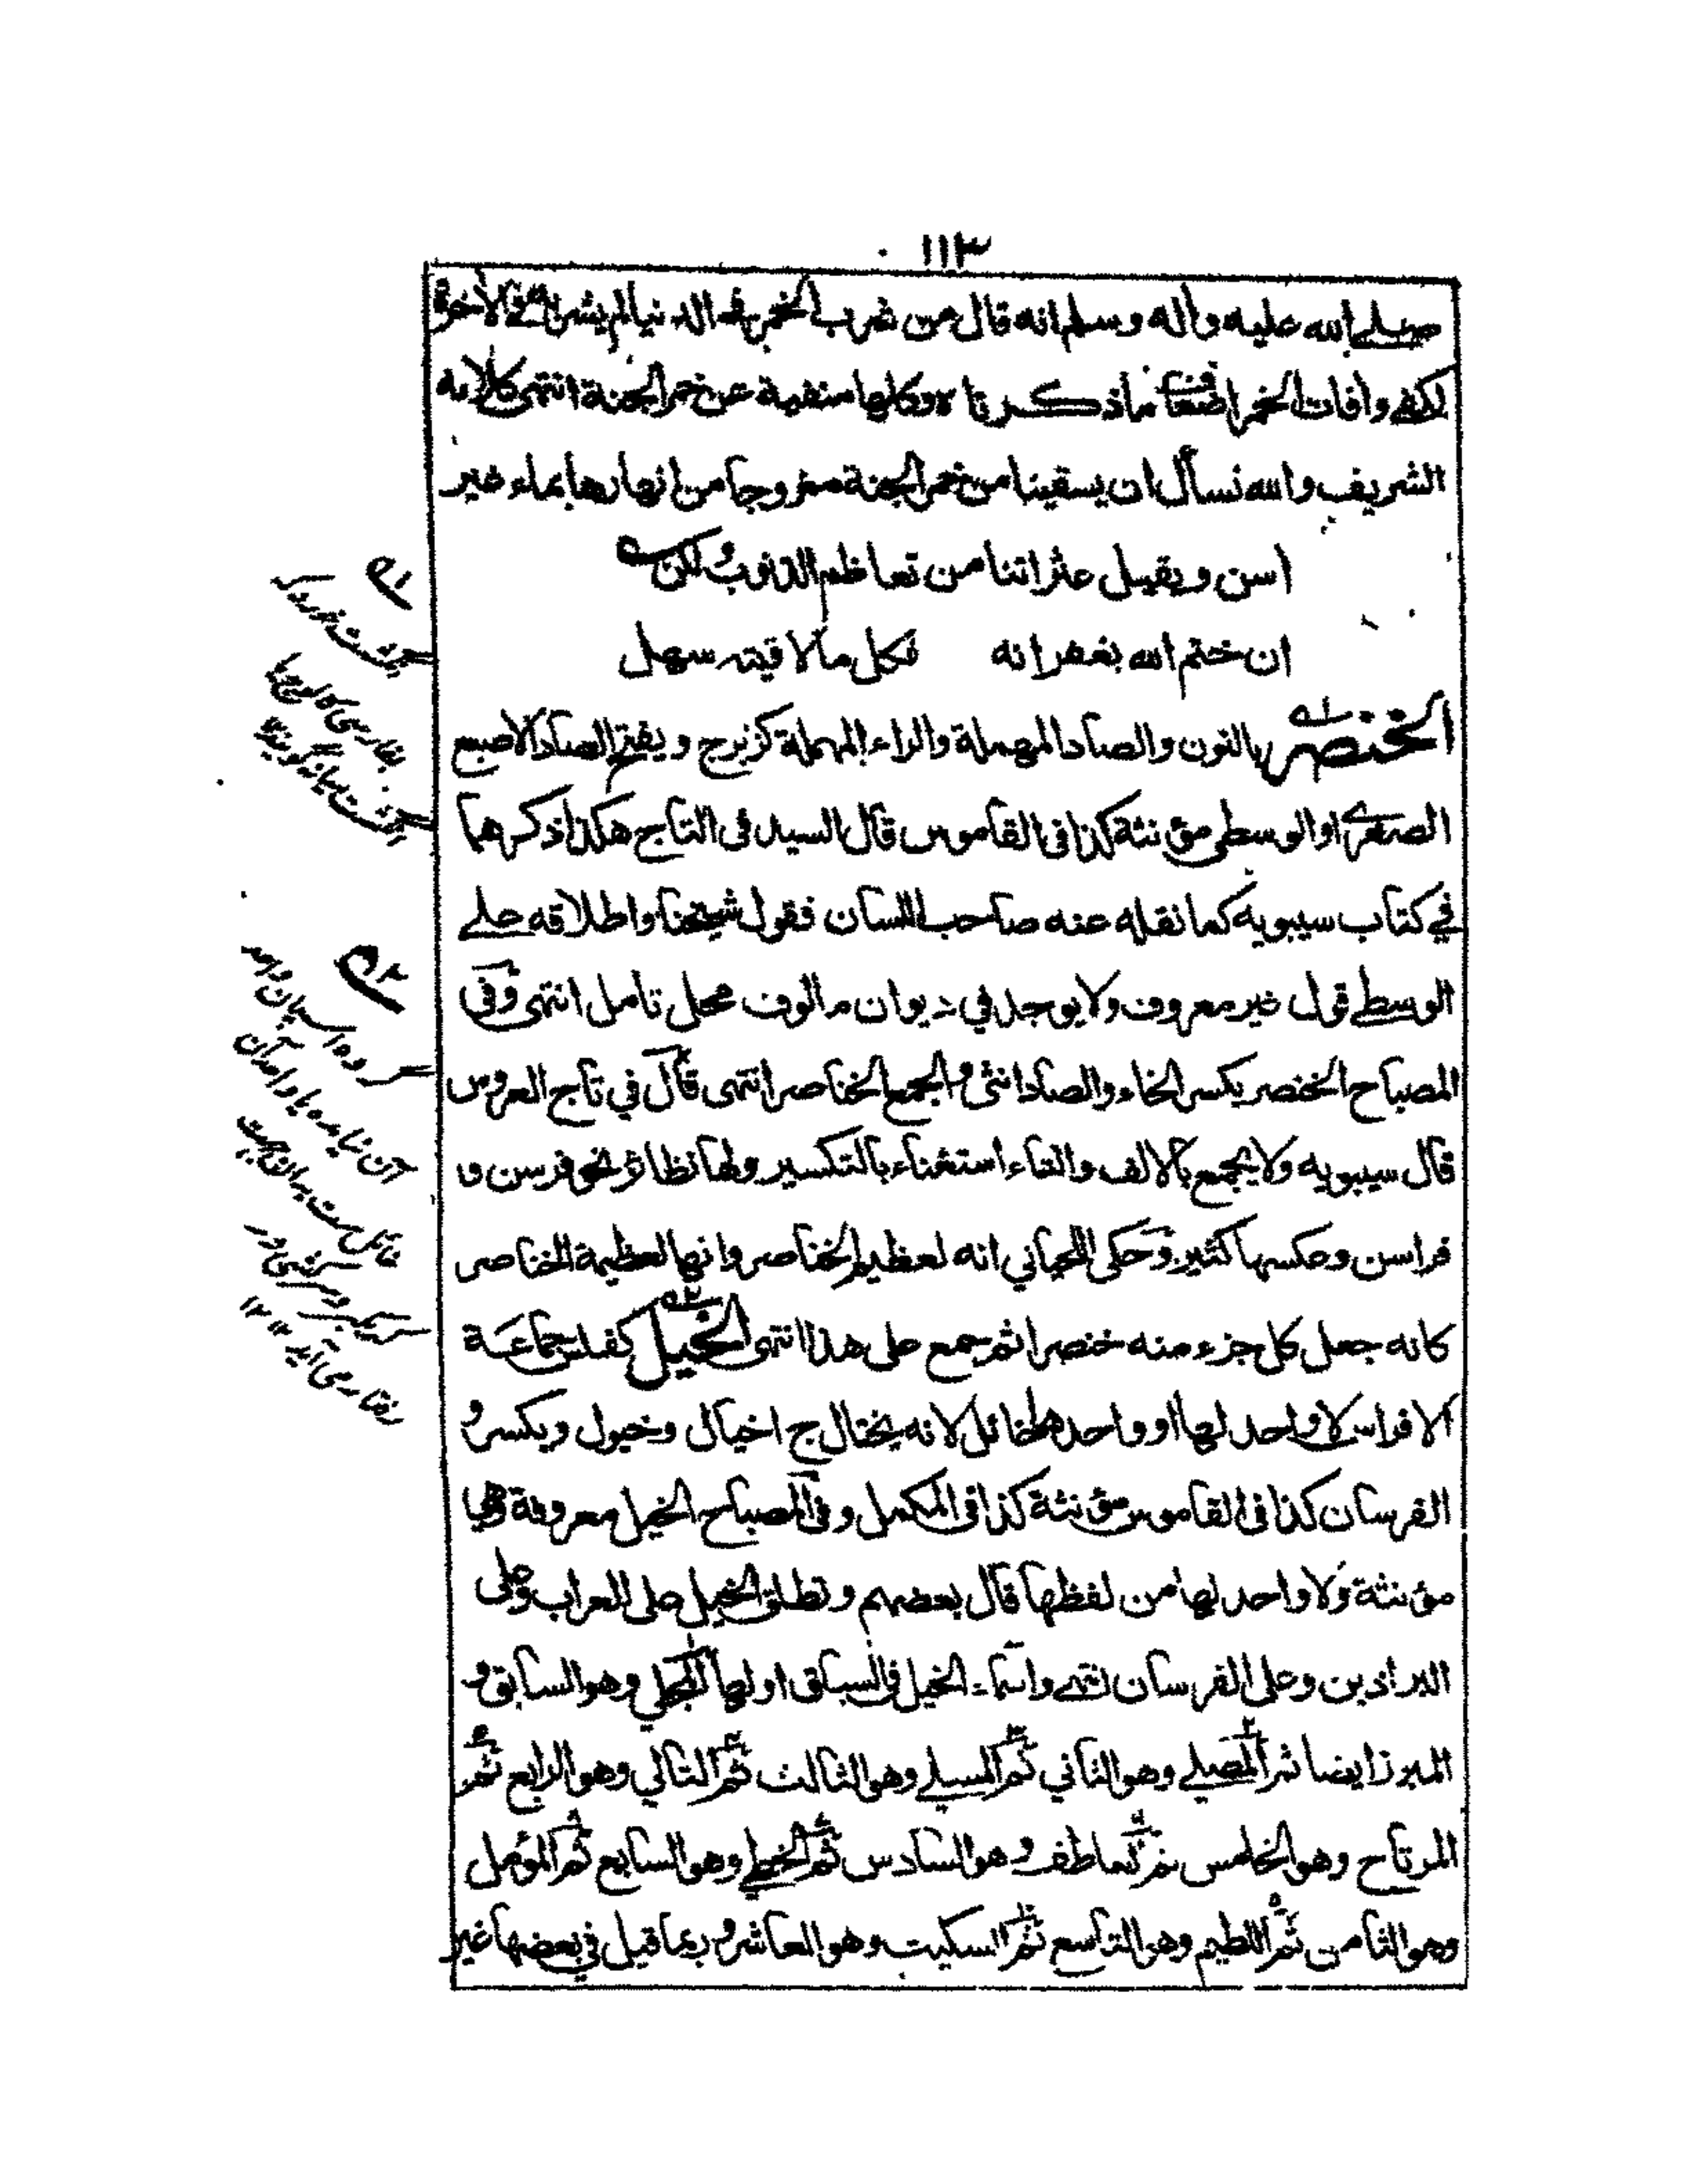 ١١٣
صلے الله عليه واٰله وسلم انه قال من شرب الخمر فے الدنيا لم يشربها فے الأخرة
لكفے وأفات الخمر اضعاف ما ذكرنا وكلها منفية عن خمر الجنة انتهى كلامه
الشريف والله نسأل ان يسقينا من خمر الجنة ممزوجا من انهارها بماء غير
اسن ويقيل عثراتنا من تعاظم الذنوب ولكن
ان ختم الله بغفرانه فكل ما لاقيته سهل
الخنصر بالنون والصاد المهملة والراء المهملة كزبرج ويفتح الصاد الاصبع
الصغرى او الوسطى مؤنثة كذا فى القاموس قال السيد فى التاج هكذا ذكرهما
في كتاب سيبويه كما نقله عنه صاحب اللسان فقول شيخنا واطلاقه علے
الوسطے قول غير معروف ولا يوجد في ديوان مالوف محل تامل انتهى وفى
المصباح الخنصر بكسر الخاء والصاد انثى والجمع الخناصر انتهى قال في تاج العروس
قال سيبويه ولا يجمع بالالف والتاء استغناء بالتكسير ولها نظائر نحو فرسن و
فراسن وعكسها كثير وحكى اللحياني انه لعظيم الخناصر وانها لعظيمة الخناصر
كانه جعل كل جزء منه خنصرا ثم جمع على هذا انتهى الخيل كفلس جماعة
الافراس لا واحد لها او واحدها خائل لانه يختال ج اخيال وخيول ويكسر و
الفرسان كذا فى القاموس مؤنثة كذا فى المكمل وفى المصباح الخيل معروفة وهي
مؤنثة ولا واحد لها من لفظها قال بعضهم وتطلق الخيل على العراب وعلى
البراذين وعلى الفرسان انتهے واسماء الخيل فى السباق اولها المجلي وهو السابق و
المبرز ايضا ثم المصلے وهو الثاني ثم المسلے وهو الثالث ثم التالي وهو الرابع ثم
المرتاح وهو الخامس ثم العاطف وهو السادس ثم الحظے وهو السابع ثم المؤمل
وهو الثامن ثم اللطيم وهو التاسع ثم السكيت وهو العاشر وربما قيل في بعضها غير
انگشت خورد كه
بفارسى كالوج يا
انگشت ميانه گويند
گروه اسپان واحد
آن نيامده يا واحد آن
خائل ست بدان جهت
رفتار مى آيد ١٢